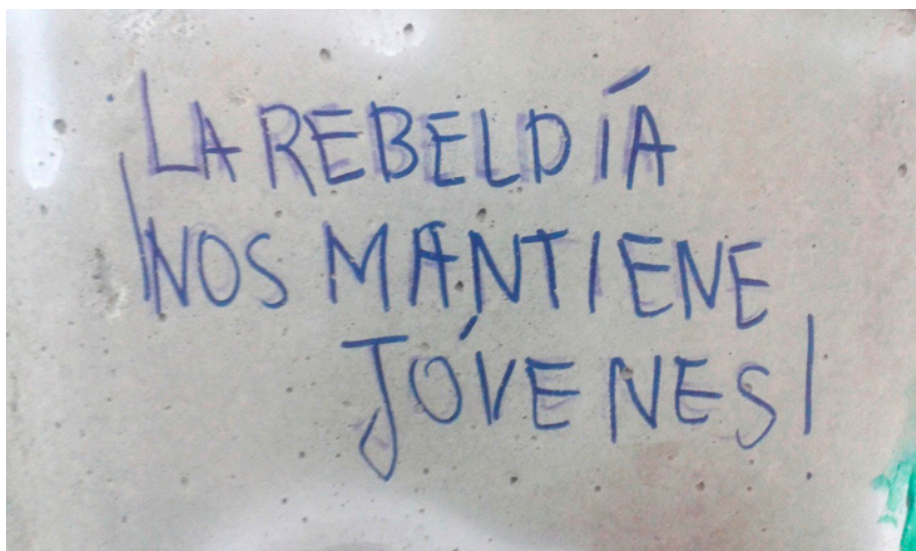 LA REBELDÍA
NOS MANTIENE
JÓVENES!